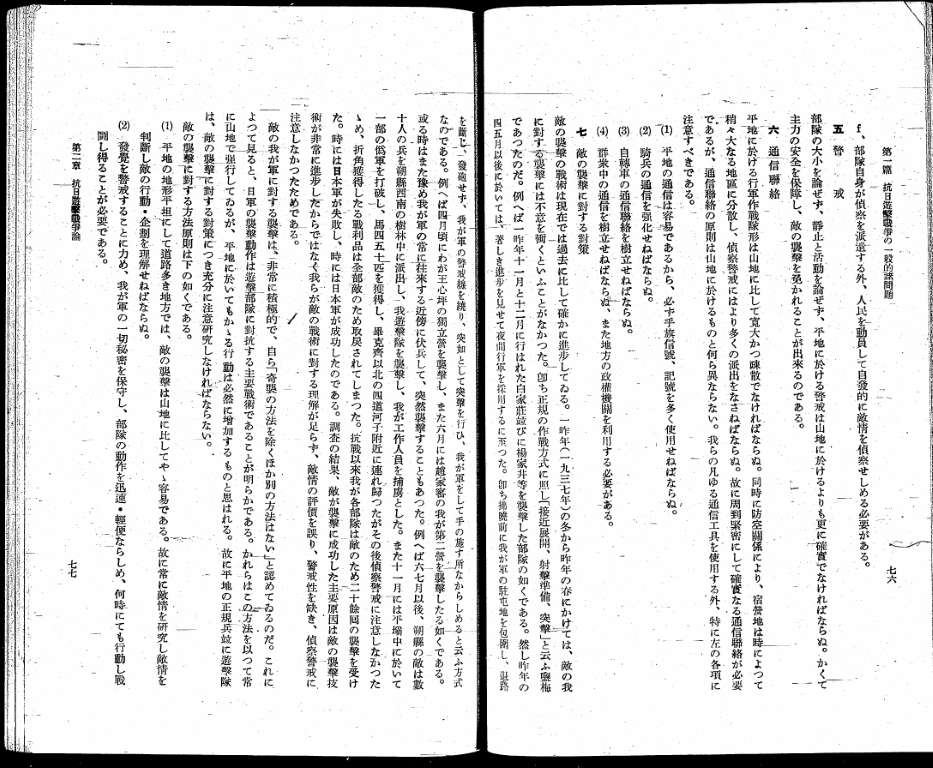 第一篇　抗日遊擊戰爭の一般的諸問題
七六
f、部隊自身が偵察を派遣する外、人民を動員して自發的に敵情を偵察せしめる必要がある。
五　警　戒
部隊の大小を論ぜず、靜止と活動を論ぜず、平地に於ける警戒は山地に於けるよりも更に確實でなければならぬ。かくて
主力の安全を保障し、敵の襲擊を免かれることが出來るのである。
六　通信聯絡
平地に於ける行軍作戰隊形は山地に比して寬大かつ疎散でなければならぬ。同時に防空關係により、宿營地は時によつて
稍々大なる地區に分散し、偵察警戒にはより多くの派出をなさねばならぬ。故に周到緊密にして確實なる通信聯絡が必要
であるが、通信聯絡の原則は山地に於けるものと何ら異ならない。我らの凡ゆる通信工具を使用する外、特に左の各項に
注意すべきである。
(1)　平地の通信は容易であるから、必ず手旗信號、記號を多く使用せねばならぬ。
(2)　騎兵の通信を强化せねばならぬ。
(3)　自轉車の通信聯絡を樹立せねばならぬ。
(4)　群衆中の通信を樹立せねばならぬ、また地方の政權機關を利用する必要がある。
七　敵の襲擊に對する對策
敵の襲擊の戰術は現在では過去に比して確かに進步してゐる。一昨年（一九三七年）の冬から昨年の春にかけては、敵の我
に對する襲擊には不意を衝くといふことがなかつた。卽ち正規の作戰方式に照し「接近展開、射擊準備、突擊」と云ふ鹽梅
であつたのだ。例へば一昨年十一月と十二月に行はれた白家莊並びに楊家井等を襲擊した部隊の如くである。然し昨年の
四五月以後に於いては、著しき進步を見せて夜間行軍を採用するに至つた。卽ち拂曉前に我が軍の駐屯地を包圍し、退路
を斷じ、發砲せず、我が軍の警戒線を繞り、突如として突擊を行ひ、我が軍をして手の施す所なからしめると云ふ方式
なのである。例へば四月頃にわが王心坪の獨立營を襲擊し、また六月には趙家窰の我が第二營を襲擊したる如くである。
或る時はまた豫め我が軍の常に往來する近傍に伏兵して、突然襲擊することもあつた。例へば六七月以後、朔縣の敵は數
十人の兵を朔縣西南の樹林中に派出し、我遊擊隊を襲擊し、我が工作人員を捕虜とした。また十一月には平瑞中に於いて
一部の僞軍を打破し、馬四五十匹を獲得し、畢克齊以北の四道河子附近に連れ歸つたがその後偵察警戒に注意しなかつた
ゝめ、折角獲得したる戰利品は全部敵のため取戾されてしまつた。抗戰以來我が各部隊は敵のため二十餘回の襲擊を受け
た。時には日本軍が失敗し、時には日本軍が成功したのである。調査の結果、敵が襲擊に成功した主要原因は敵の襲擊技
術が非常に進步したからではなく我らが敵の戰術に對する理解が足らず、敵情の評價を誤り、警戒性を缺き、偵察警戒に
注意しなかつたためである。
敵の我が軍に對する襲擊は、非常に積極的で、自ら「奇襲の方法を除くほか別の方法はない」と認めてゐるのだ。これに
よつて見ると、日軍の襲擊動作は遊擊部隊に對抗する主要戰術であることが明らかである。かれらはこの方法を以つて常
に山地で强行してゐるが、平地に於いてもかゝる行動は必然に增加するものと思はれる。故に平地の正規兵並に遊擊隊
は、敵の襲擊に對する對策につき充分に注意研究しなければならない。
敵の襲擊に對する方法原則は下の如くである。
(1)　平地の地形平坦にして道路多き地方では、敵の襲擊は山地に比してやゝ容易である。故に常に敵情を研究し敵情を
判斷し敵の行動・企劃を理解せねばならぬ。
(2)　發覺を警戒することに力め、我が軍の一切祕密を保守し、部隊の動作を迅速・輕便ならしめ、何時にても行動し戰
鬪し得ることが必要である。
第二章　抗日遊擊戰爭論
七七